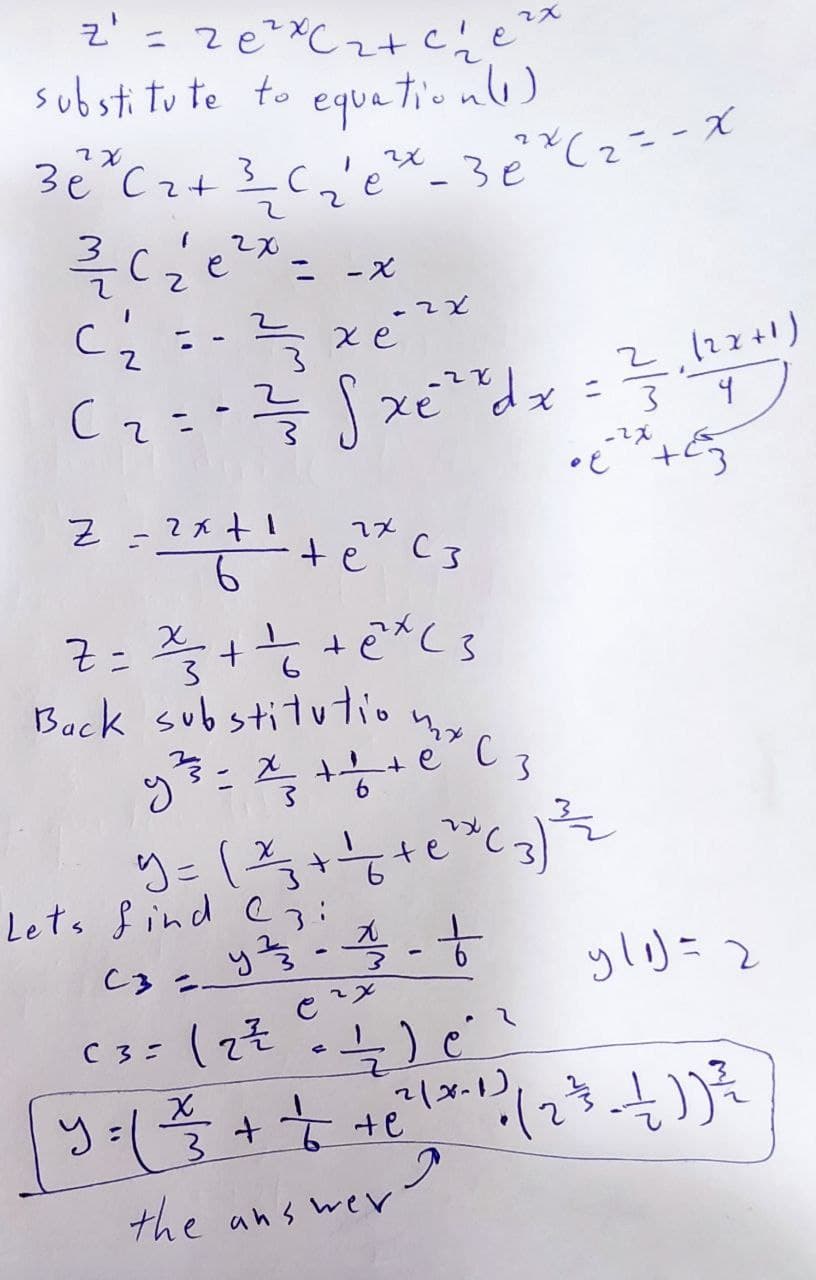 z' = 2e^{2x}C_2 + C_2' e^{2x}
substitute to equation (1)
3e^{2x}C_2 + \frac{3}{2} C_2' e^{2x} - 3e^{2x}C_2 = -x
\frac{3}{2} C_2' e^{2x} = -x
C_2' = -\frac{2}{3} x e^{-2x}
C_2 = -\frac{2}{3} \int x e^{-2x} dx = \frac{2}{3} \cdot \frac{(2x+1)}{4}
\cdot e^{-2x} + C_3
z = \frac{2x+1}{6} + e^{2x} C_3
z = \frac{x}{3} + \frac{1}{6} + e^{2x} C_3
Back substitution
y^{\frac{2}{3}} = \frac{x}{3} + \frac{1}{6} + e^{2x} C_3
y = (\frac{x}{3} + \frac{1}{6} + e^{2x} C_3)^{\frac{3}{2}}
Lets find C_3:
C_3 = \frac{y^{\frac{2}{3}} - \frac{x}{3} - \frac{1}{6}}{e^{2x}} y(1) = 2
C_3 = (2^{\frac{3}{2}} - \frac{1}{2}) e^{-2}
y = (\frac{x}{3} + \frac{1}{6} + e^{2(x-1)} \cdot (2^{\frac{2}{3}} - \frac{1}{2}))^{\frac{3}{2}}
the answer